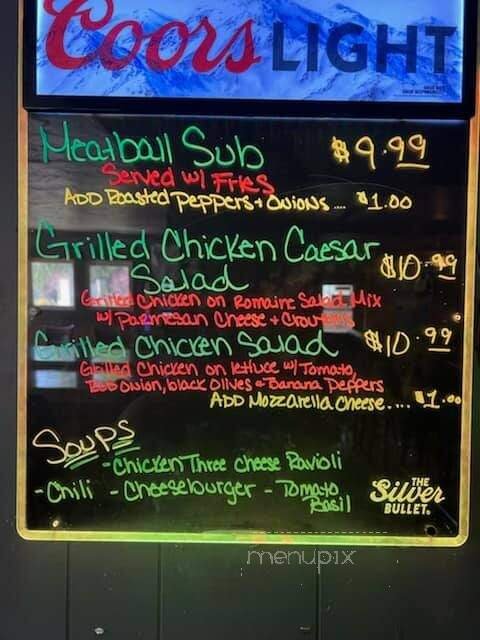 Coors LIGHT
Meatball Sub $9.99
Served w/ Fries
ADD Roasted Peppers + Onions .... $1.00
Grilled Chicken Caesar
Salad $10.99
Grilled Chicken on Romaine Salad Mix
w/ Parmesan Cheese + Croutons
Grilled Chicken Salad $10.99
Grilled Chicken on lettuce w/ Tomato,
Red Onion, black Olives + Banana Peppers
ADD Mozzarella Cheese.... $1.00
Soups
- Chicken Three Cheese Ravioli
- Chili - Cheeseburger - Tomato
Basil
THE
Silver
BULLET.
menupix